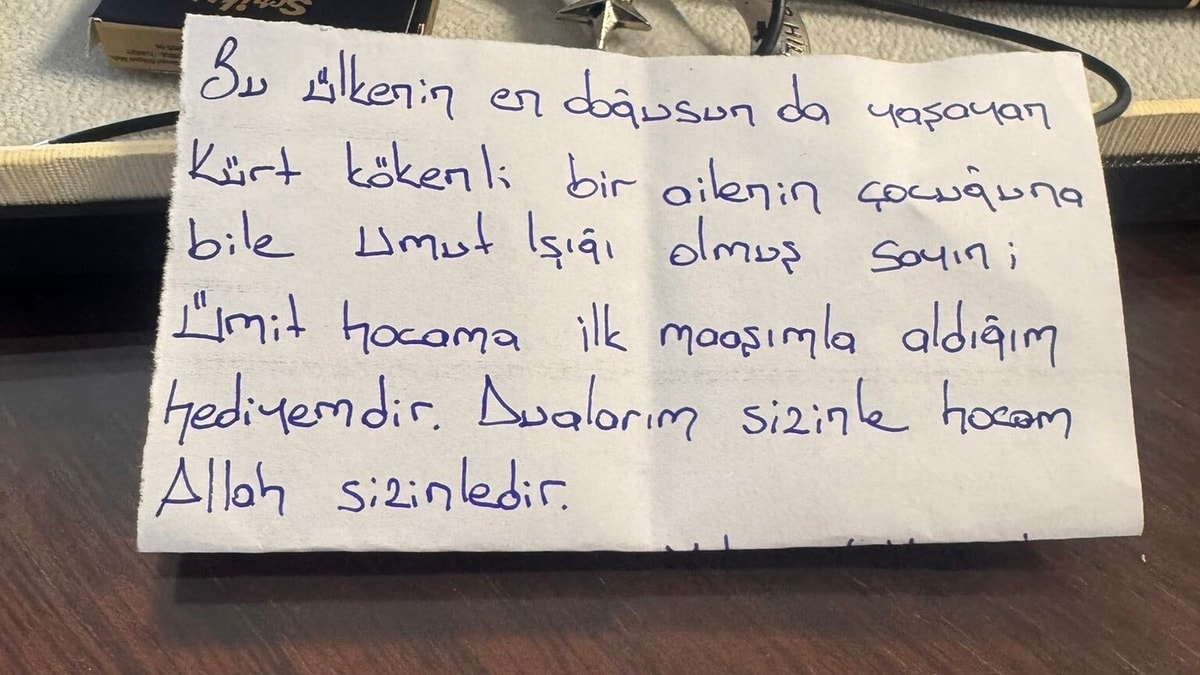 Bu ülkenin en doğusun da yaşayan
Kürt kökenli bir ailenin çocuğuna
bile Umut Işığı olmuş Sayın;
Ümit hocama ilk maaşımla aldığım
hediyemdir. Dualarım sizinle hocam
Allah sizinledir.